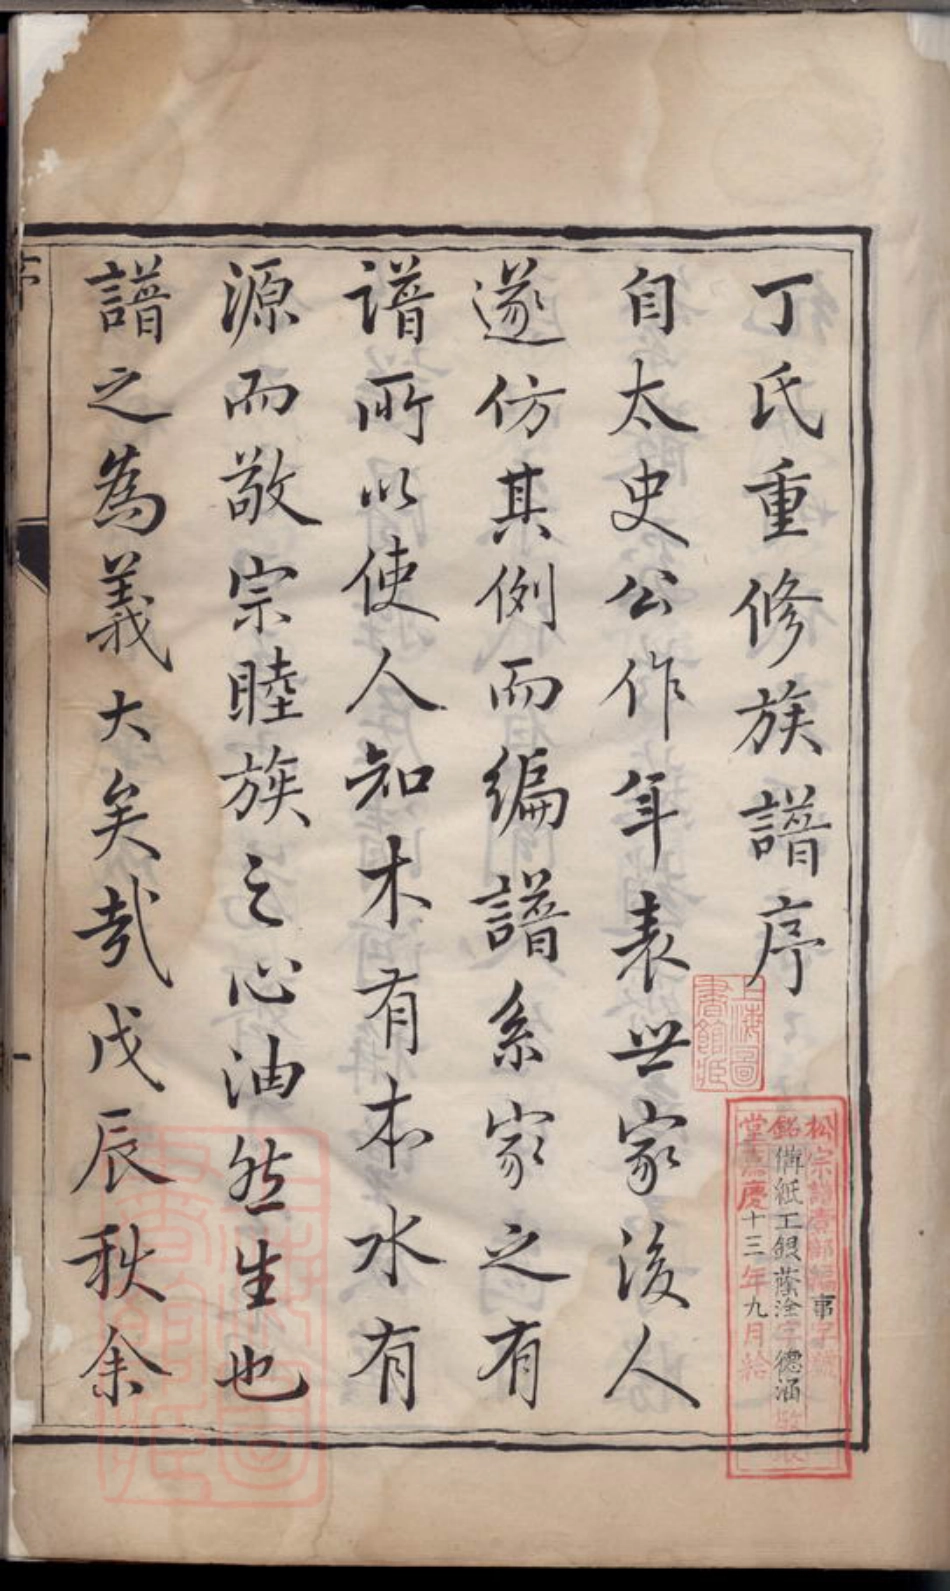 丁氏重修族譜序
自太史公作年表世家後人
遂仿其例而編譜系家之有
譜所以使人知木有本水有
源而敬宗睦族之心油然生也
譜之為義大矣哉戊辰秋余
上海圖
書館藏
松宗譜
銘備紙工銀德涵
堂嘉慶十三年九月給